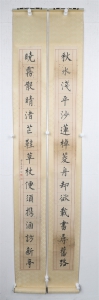 秋水淺平沙蓮棹菱舟却泛載書尋舊路
曉霧散晴渚芒鞋草杖便須攜酒訪新亭